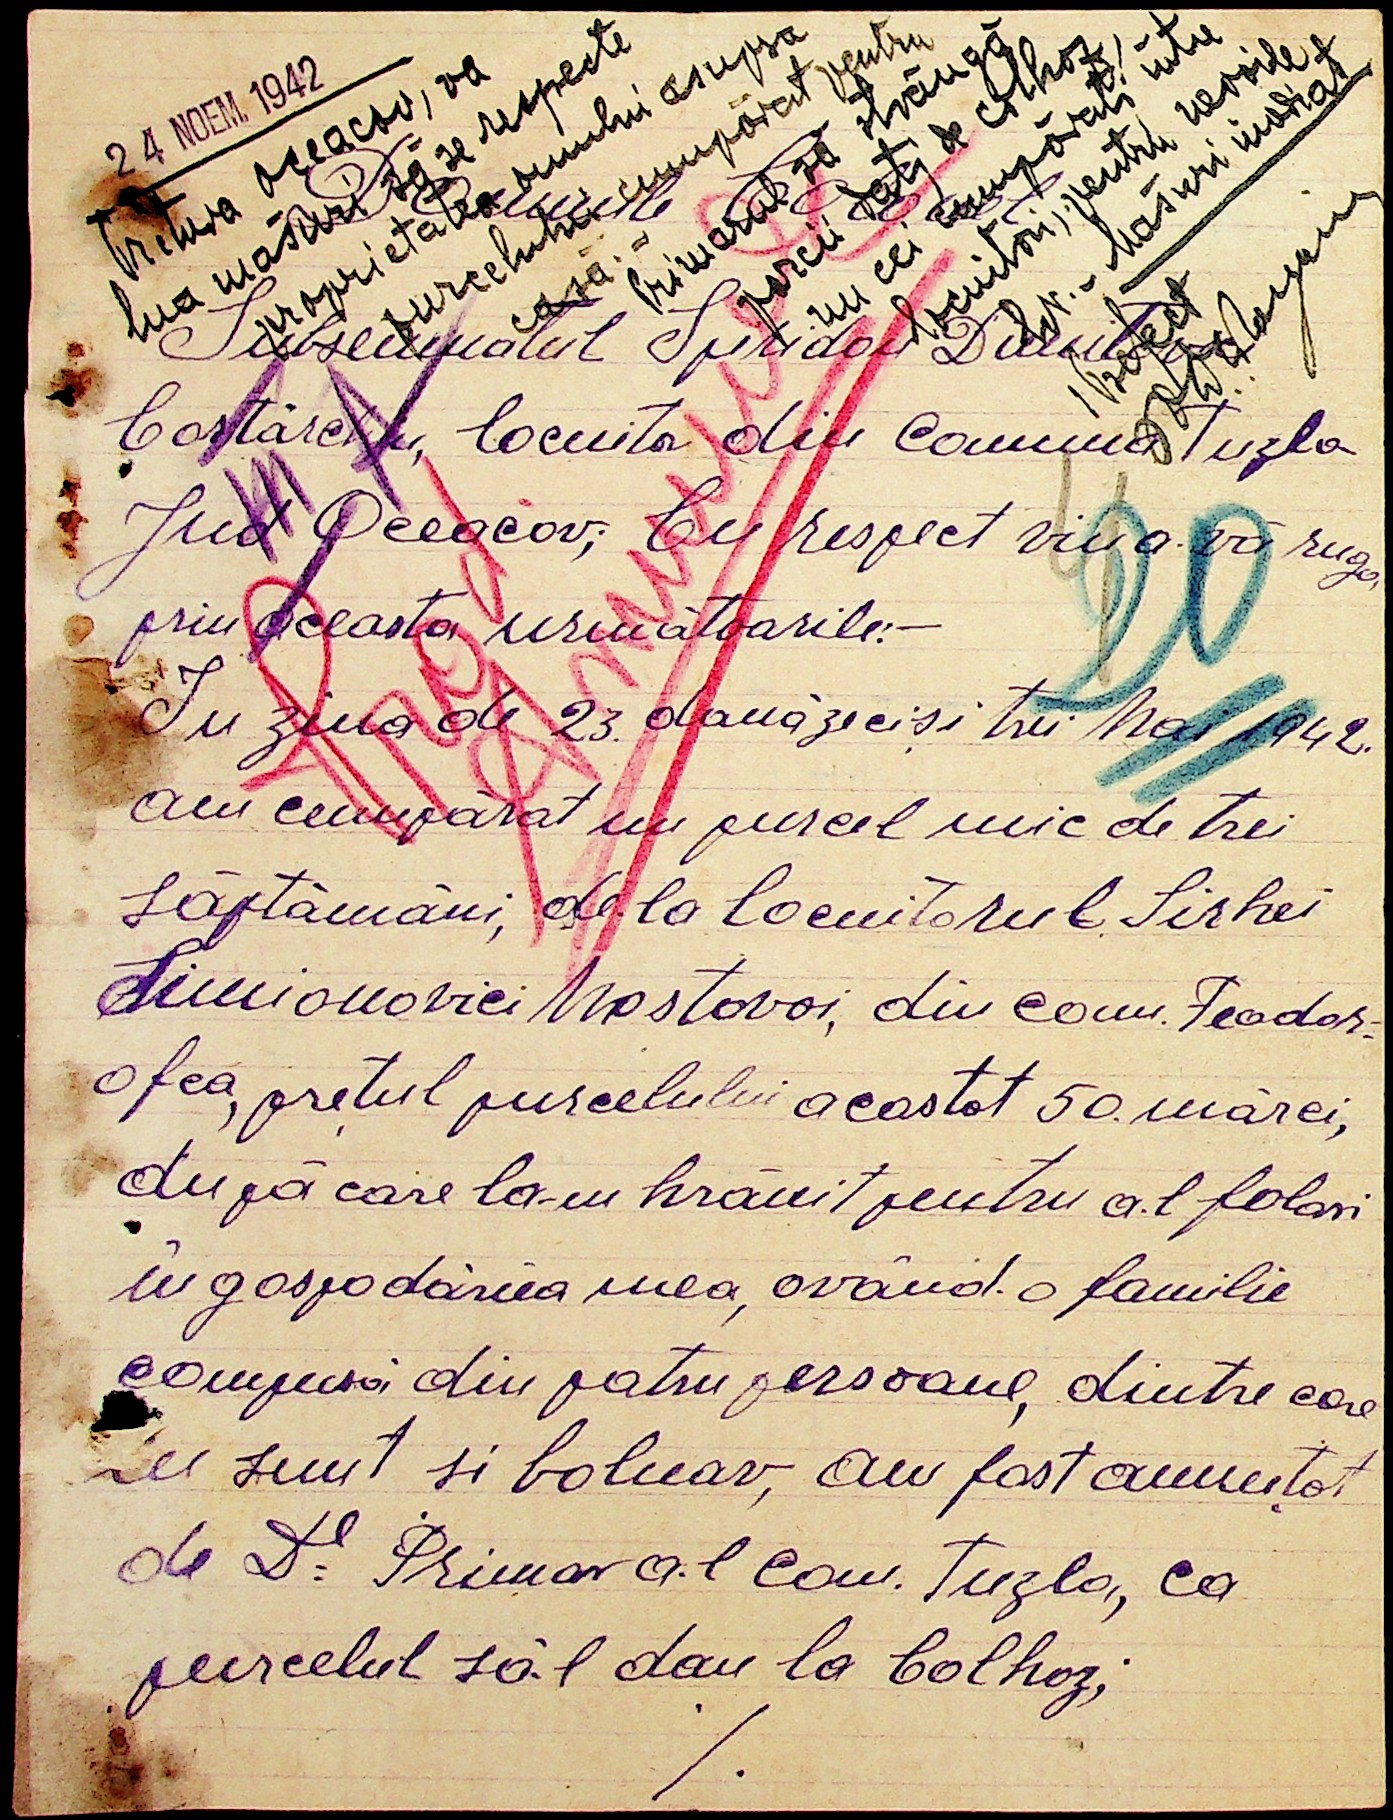 24 NOEM. 1942
Pretura Oceacov, va
lua măsuri să se respecte
proprietatea omului asupra
purcelului cumpărat pentru
casă.-
Primarul să strângă
porcii dați de colhoz,
nu cei cumpărați între
locuitori, pentru nevoile
lor.- Măsuri imediat
Prefect
Domnule Prefect
Subsemnatul Spiridon Dumitru
Costărchu, locuitor din Comuna Tuzla
Jud Oceacov; Cu respect vin a vă ruga
prin aceasta următoarile:-
20
In ziua de 23. douăzeci și trei Mai 1942.
am cumpărat un purcel mic de trei
săptămâni, de la locuitorul Sirhei
Simionovici Mostovoi, din com. Feodor-
ofca, prețul purcelului acostat 50. mărci,
după care la-m hrănit pentru a.l folosi
în gospodăriea mea, având o familie
compusă din patru persoane, dintre care
eu sunt si bolnav, am fost anunțat
de Dl Primar a.l com. Tuzla, ca
purcelul să.l dau la Colhoz;
/.